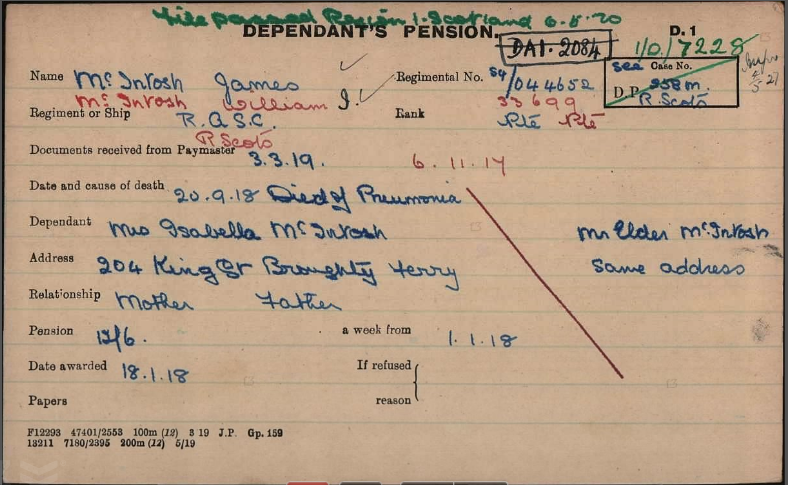 File passed Region 1. Scotland 6-5-20
DEPENDANT'S PENSION.
DA1. 2084
D. 1
1/D/7228
Name Mc Intosh James
Regimental No. S4/044652
see Case No.
Mc Intosh William J.
33699
D.P. 258m.
R. Scots
Regiment or Ship R.A.S.C.
Rank Pte Pte
R Scots
Documents received from Paymaster 3.3.19. 6.11.17
Date and cause of death 20.9.18 Died of Pneumonia
Dependant Mrs Isabella McIntosh
Mr Elder McIntosh
Address 204 King St Broughty Ferry
Same address
Relationship Mother Father
Pension 12/6. a week from 1.1.18
Date awarded 18.1.18 If refused
Papers reason
F12293 47401/2553 100m (12) 3 19 J.P. Gp. 159
13211 7180/2395 200m (12) 5/19